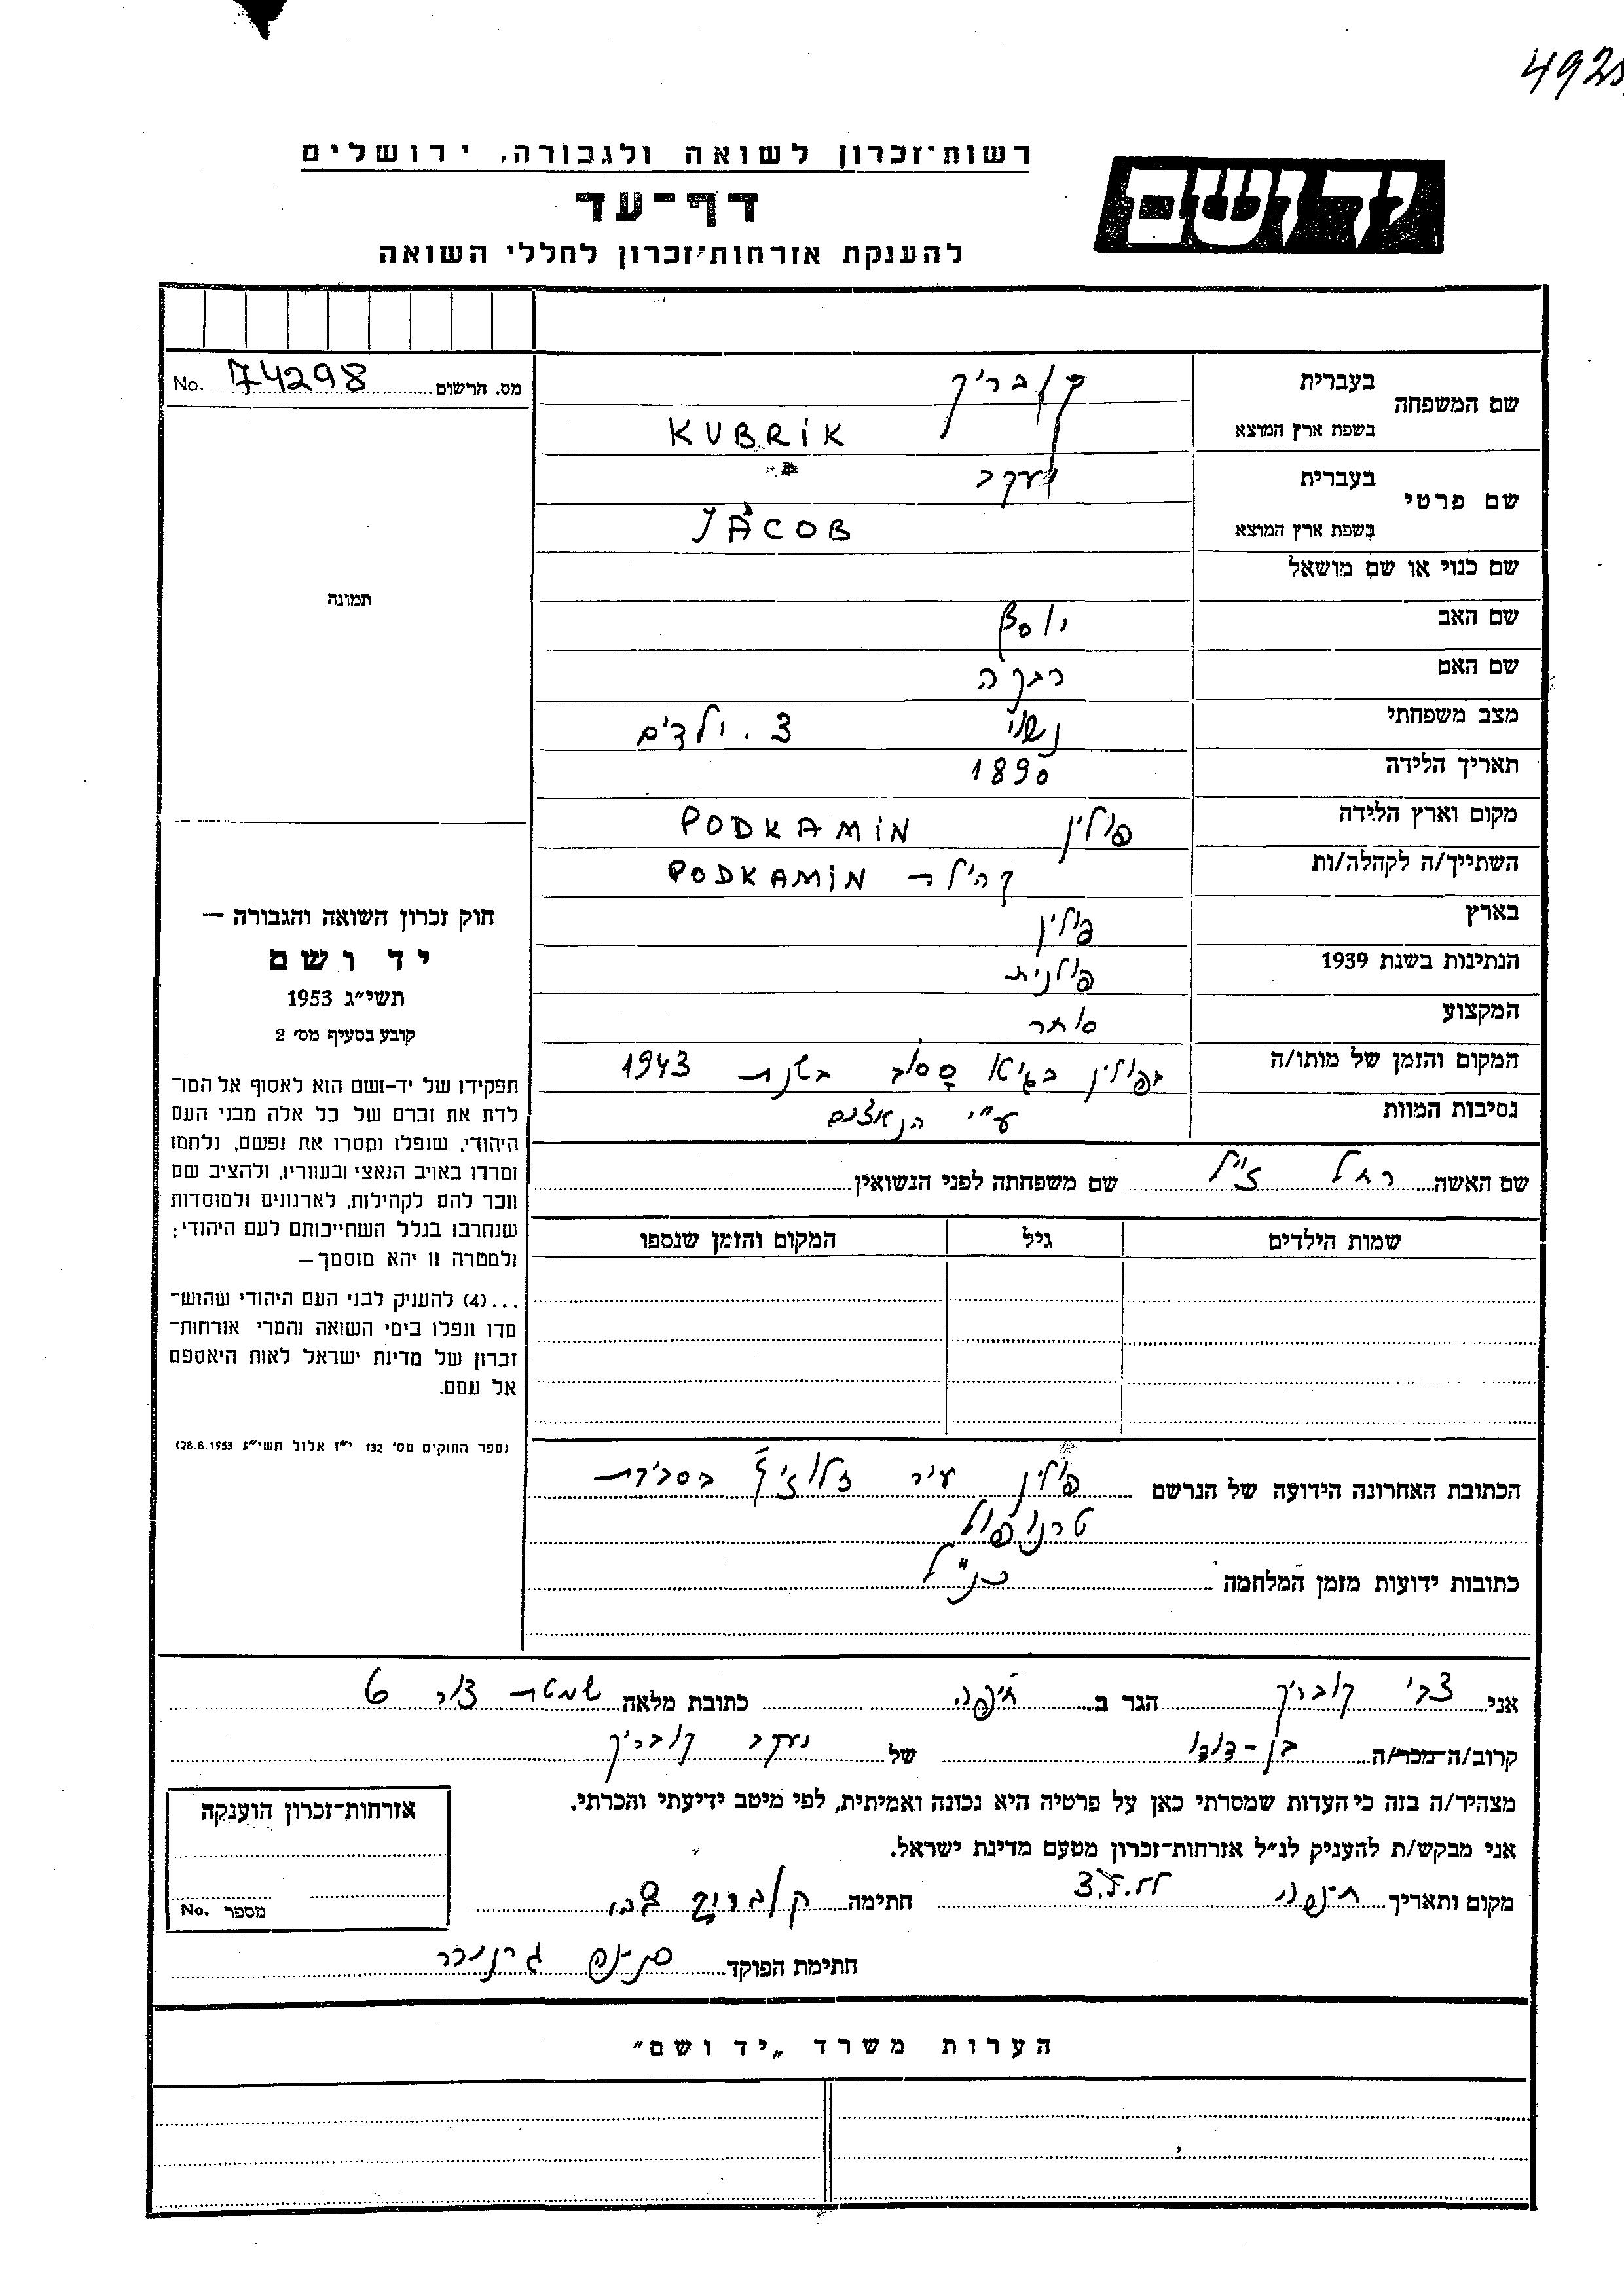 492
רשות־זכרון לשואה ולגבורה, ירושלים
יד ושם
דף־עד
להענקת אזרחות־זכרון לחללי השואה
מס. הרשום 74298 No.
תמונה
שם המשפחה
בעברית קובריק
בשפת ארץ המוצא KUBRIK
שם פרטי
בעברית יעקב
בשפת ארץ המוצא JACOB
שם כנוי או שם מושאל
שם האב יוסף
שם האם רבקה
מצב משפחתי נשוי 3 ילדים
תאריך הלידה 1890
מקום וארץ הלידה פולין PODKAMIN
השתייך/ה לקהלה/ות קהילת PODKAMIN
בארץ פולין
הנתינות בשנת 1939 פולנית
המקצוע סוחר
המקום והזמן של מותו/ה בפולין בשנת 1943
נסיבות המוות ע"י הנאצים
חוק זכרון השואה והגבורה —
יד ושם
תשי״ג 1953
קובע בסעיף מס׳ 2
תפקידו של יד־ושם הוא לאסוף אל המו־
לדת את זכרם של כל אלה מבני העם
היהודי, שנפלו ומסרו את נפשם, נלחמו
ומרדו באויב הנאצי ובעוזריו, ולהציב שם
וזכר להם לקהילות, לארגונים ולמוסדות
שנחרבו בגלל השתייכותם לעם היהודי;
ולמטרה זו יהא מוסמך —
...(4) להעניק לבני העם היהודי שהוש־
מדו ונפלו בימי השואה והמרי אזרחות־
זכרון של מדינת ישראל לאות היאספם
אל עמם.
(ספר החוקים מס׳ 132 י״ז אלול תשי״ג 28.8.1953)
שם האשה רחל ז"ל שם משפחתה לפני הנשואין
שמות הילדים גיל המקום והזמן שנספו
הכתובת האחרונה הידועה של הנרשם פולין עיר בסביבת
טרנופול
כתובות ידועות מזמן המלחמה כנ"ל
אני צבי קובריק הגר ב חיפה כתובת מלאה 6
קרוב/ה־מכר/ה בן־דודו של יעקב קובריק
מצהיר/ה בזה כי העדות שמסרתי כאן על פרטיה היא נכונה ואמיתית, לפי מיטב ידיעתי והכרתי.
אני מבקש/ת להעניק לנ״ל אזרחות־זכרון מטעם מדינת ישראל.
מקום ותאריך חיפה חתימה קובריק צבי
חתימת הפוקד
אזרחות־זכרון הוענקה
מספר No.
הערות משרד „יד ושם״